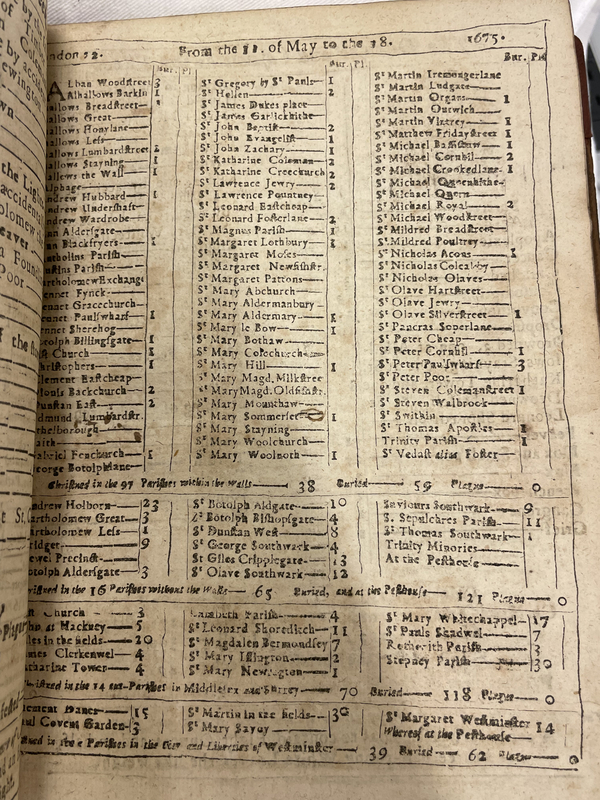 ndon 22.
From the 11. of May to the 18.
1675.
Bur. Pl.
Alban Woodstreet 3
Alhallows Barkin 1
allows Breadstreet
allows Great
allows Honylane
allows Less
allows Lumbardstreet 2
allows Stayning 1
allows the Wall 1
lphage
ndrew Hubbard 1
ndrew Undershaft
ndrew Wardrobe
nn Aldersgate
nn Blackfryers 1
ntholins Parish
stins Parish
artholomew Exchange
ennet Fynck
ennet Gracechurch
ennet Paulswharf 1
ennet Sherehog
otolph Billingsgate 1
st Church 1
hristophers 1
lement Eastcheap
ionis Backchurch 2
unstan East 2
dmund Lumbardstr.
thelborough
aith
abriel Fenchurch 1
eorge Botolphlane
Bur. Pl.
Sᵗ Gregory by Sᵗ Pauls 1
Sᵗ Hellen 2
Sᵗ James Dukes place
Sᵗ James Garlickhithe
Sᵗ John Baptist 2
Sᵗ John Evangelist 1
Sᵗ John Zachary 1
Sᵗ Katharine Coleman 2
Sᵗ Katharine Creechurch 2
Sᵗ Lawrence Jewry 2
Sᵗ Lawrence Pountney
Sᵗ Leonard Eastcheap
Sᵗ Leonard Fosterlane 2
Sᵗ Magnus Parish 1
Sᵗ Margaret Lothbury 1
Sᵗ Margaret Moses
Sᵗ Margaret Newfishstr.
Sᵗ Margaret Pattons
Sᵗ Mary Abchurch
Sᵗ Mary Aldermanbury
Sᵗ Mary Aldermary 1
Sᵗ Mary le Bow 1
Sᵗ Mary Bothaw
Sᵗ Mary Colechurch
Sᵗ Mary Hill 1
Sᵗ Mary Magd. Milkstree
Sᵗ Mary Magd. Oldfishstr.
Sᵗ Mary Mounthaw
Sᵗ Mary Sommerset 1
Sᵗ Mary Stayning
Sᵗ Mary Woolchurch
Sᵗ Mary Woolnoth 1
Bur. Pl.
Sᵗ Martin Iremongerlane
Sᵗ Martin Ludgate
Sᵗ Martin Organs 1
Sᵗ Martin Outwich
Sᵗ Martin Vintrey 1
Sᵗ Matthew Fridaystreet 1
Sᵗ Michael Bassishaw 1
Sᵗ Michael Cornhil 2
Sᵗ Michael Crookedlane 1
Sᵗ Michael Queenhithe
Sᵗ Michael Quern
Sᵗ Michael Royal 2
Sᵗ Michael Woodstreet
Sᵗ Mildred Breadstreet
Sᵗ Mildred Poultrey
Sᵗ Nicholas Acons 1
Sᵗ Nicholas Coleabby
Sᵗ Nicholas Olaves
Sᵗ Olave Hartstreet
Sᵗ Olave Jewry
Sᵗ Olave Silverstreet 1
Sᵗ Pancras Soperlane
Sᵗ Peter Cheap
Sᵗ Peter Cornhil 1
Sᵗ Peter Paulswharf 3
Sᵗ Peter Poor
Sᵗ Steven Colemanstreet 1
Sᵗ Steven Walbrook
Sᵗ Swithin
Sᵗ Thomas Apostles 1
Trinity Parish 1
Sᵗ Vedast alias Foster
Christned in the 97 Parishes within the Walls 38 Buried 59 Plague 0
ndrew Holborn 23
artholomew Great 3
artholomew Less 1
ridget 9
ewel Precinct
otolph Aldersgate 3
Sᵗ Botolph Aldgate 10
Sᵗ Botolph Bishopsgate 4
Sᵗ Dunstan West 8
Sᵗ George Southwark 4
Sᵗ Giles Cripplegate 23
Sᵗ Olave Southwark 12
Saviours Southwark 9
S. Sepulchres Parish 11
Sᵗ Thomas Southwark 1
Trinity Minories
At the Pesthouse
ristned in the 16 Parishes without the Walls 65 Buried, and at the Pesthouse 121 Plague 0
st Church 3
hn at Hackney 5
les in the fields 20
mes Clerkenwel 4
atharine Tower 4
Lambeth Parish 4
Sᵗ Leonard Shoreditch 11
Sᵗ Magdalen Bermondsey 7
Sᵗ Mary Islington 2
Sᵗ Mary Newington 1
Sᵗ Mary Whitechappel 17
Sᵗ Pauls Shadwel 7
Rotherith Parish 3
Stepney Parish 30
hristned in the 14 out-Parishes in Middlesex and Surrey 70 Buried 118 Plague 0
lement Danes 15
ul Covent Garden 3
Sᵗ Martin in the fields 30
Sᵗ Mary Savoy
Sᵗ Margaret Westminster 14
Whereof at the Pesthouse
ned in the 5 Parishes in the City and Liberties of Westminster 39 Buried 62 Plague 0